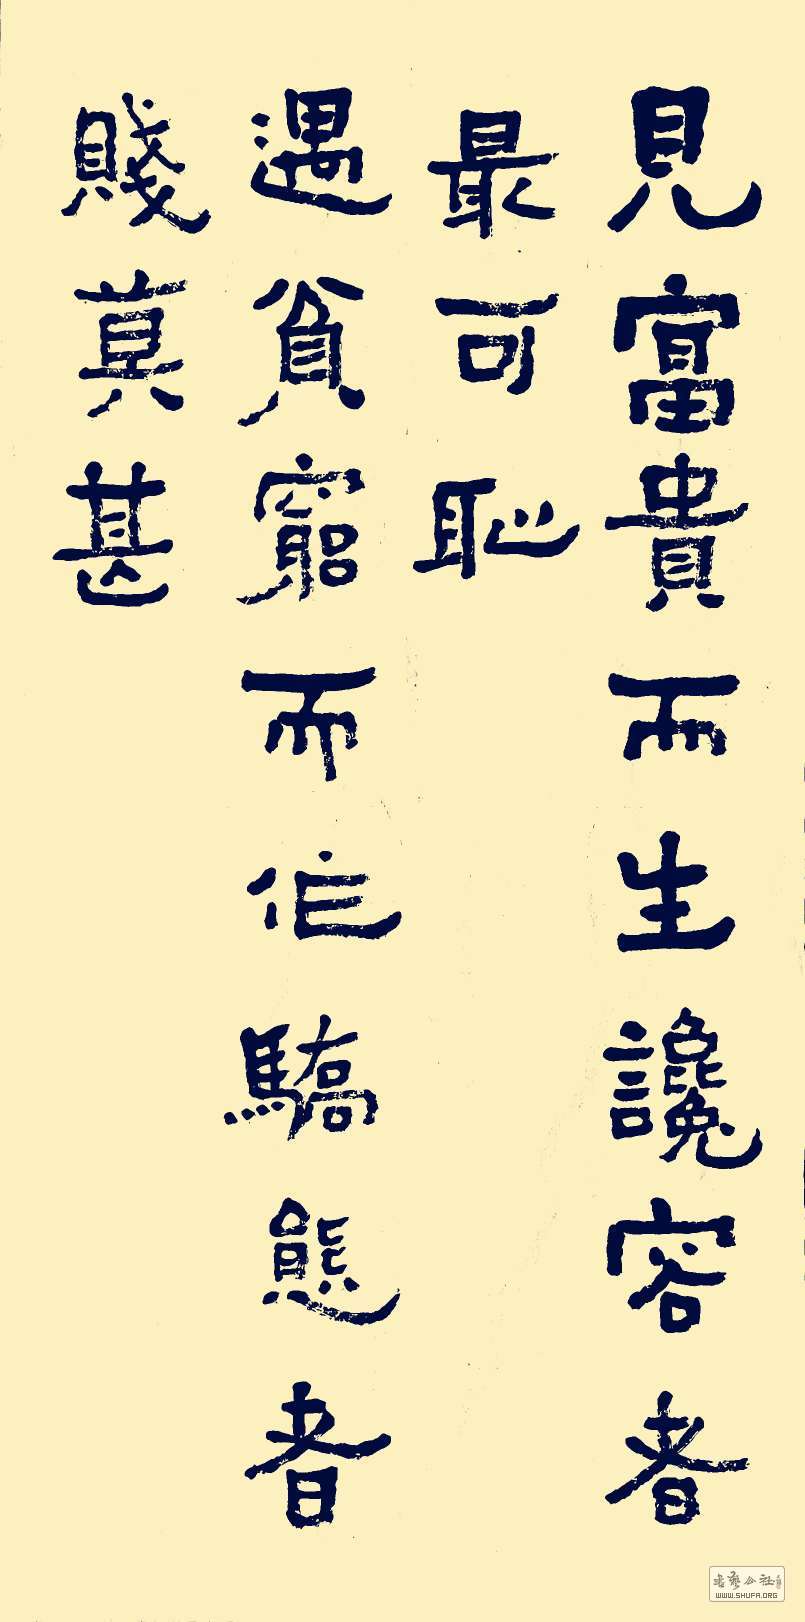 見富貴而生讒容者
最可恥
遇貧窮而作驕態者
賤莫甚
書藝公社
WWW.SHUFA.ORG